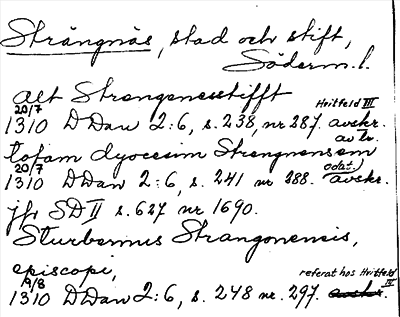 Strängnäs, stad och stift,
Söderm.l.
alt Strengenesstifft
20/7 Hvitfeld III
1310 DDan 2:6, s. 238, nr 287. avskr.
av lv.
totam dyocesim Strengnensem
20/7 odat.)
1310 DDan 2:6, s. 241 nr 288. avskr.
jfr SD II s. 627 nr 1690.
Sturbernus Strangonensis,
episcopi,
9/8 referat hos Hvitfeld IV
1310 DDan 2:6, s. 248 nr. 297. avskr.